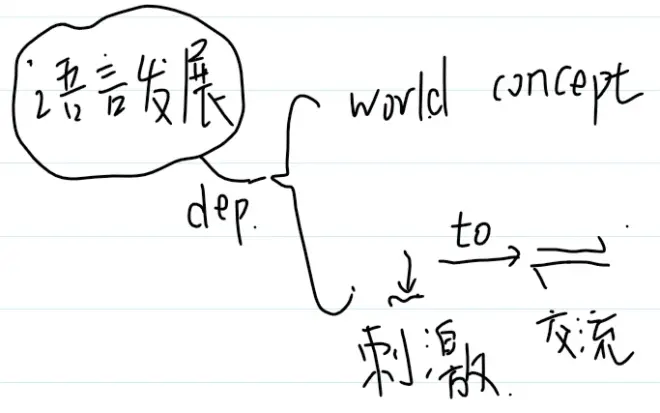 语言发展
dep.
world concept
to
刺激
交流